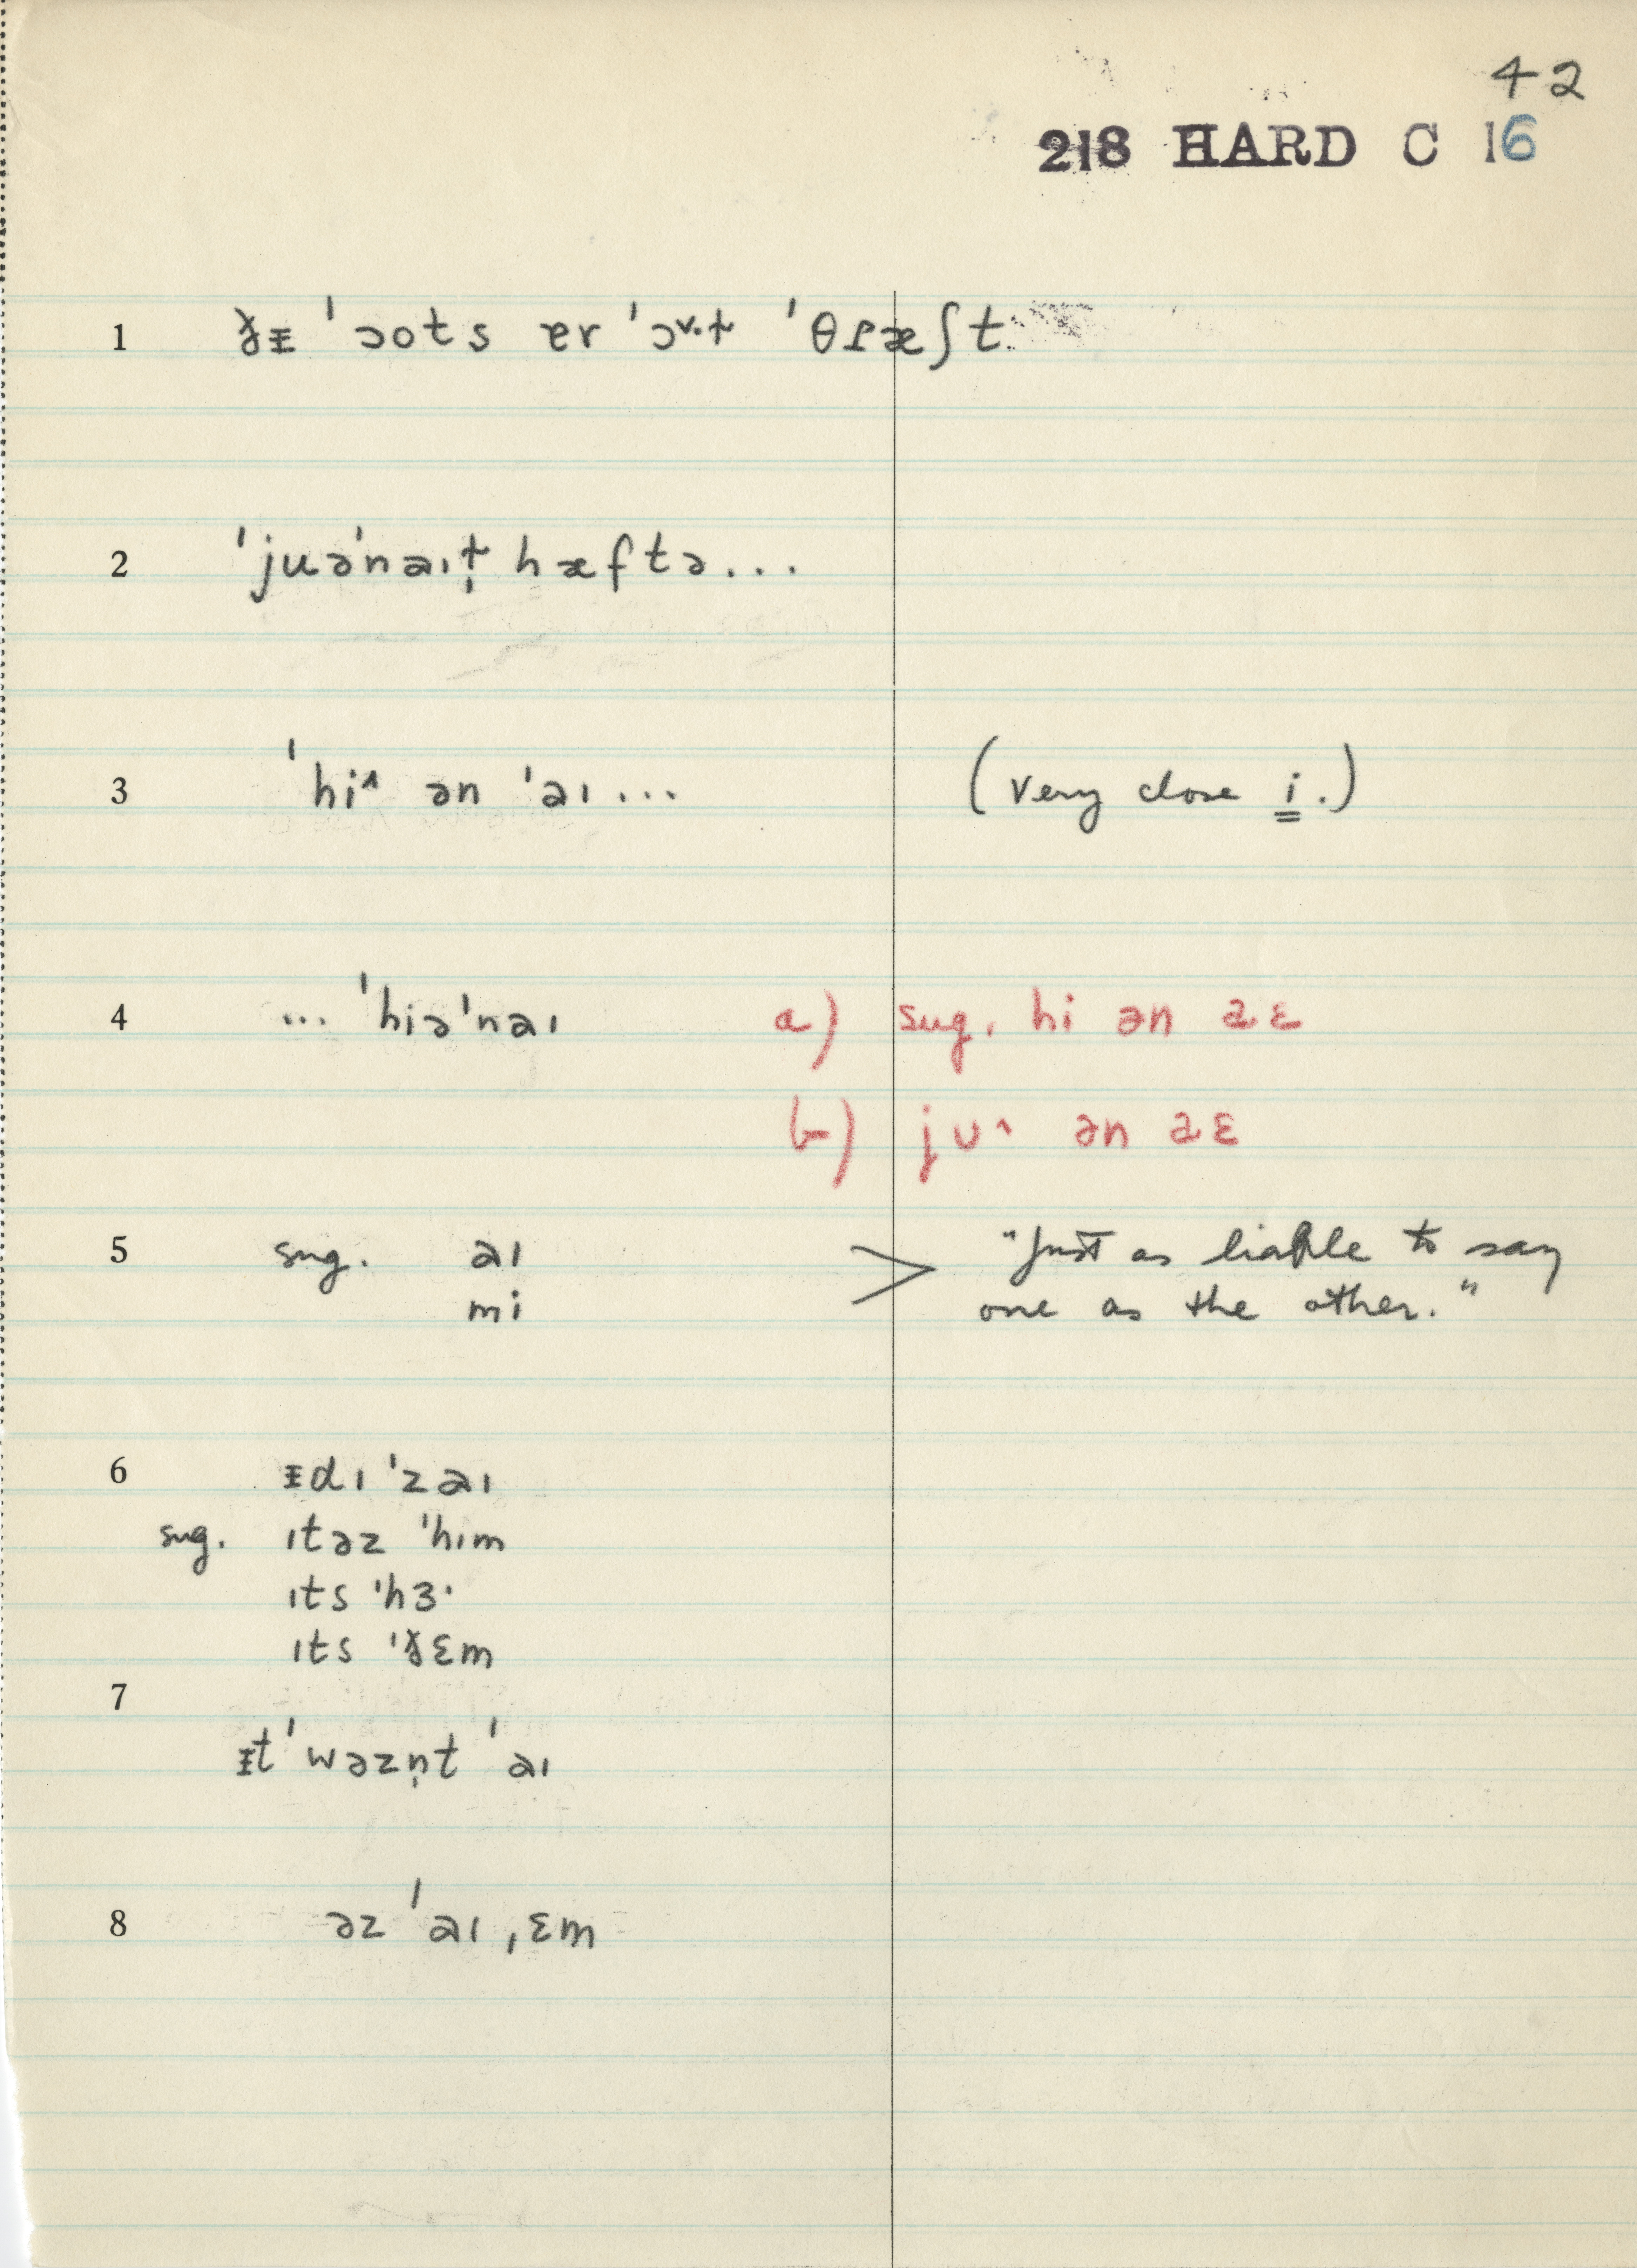 42
218 HARD C 16
1 ðᵻ ˈɔots ɐr ˈɔᵛ·t̬ ˈθɾæʃt
2 ˈjuəˈnaɪt̬̩ hæftə...
3 ˈhi^ ən ˈaɪ... (very close i.)
4 ... ˈhiəˈnaɪ a) sug. hi ən aɛ
b) ju^ ən aɛ
5 sug. aɪ > "Just as liable to say
mi one as the other."
6 ᵻdɪˈzaɪ
sug. ɪtəz ˈhɪm
ɪts ˈhɜ·
ɪts ˈðɛm
7
ᵻtˈwəzn̩t ˈaɪ
8 əz ˈaɪ ˌɛm